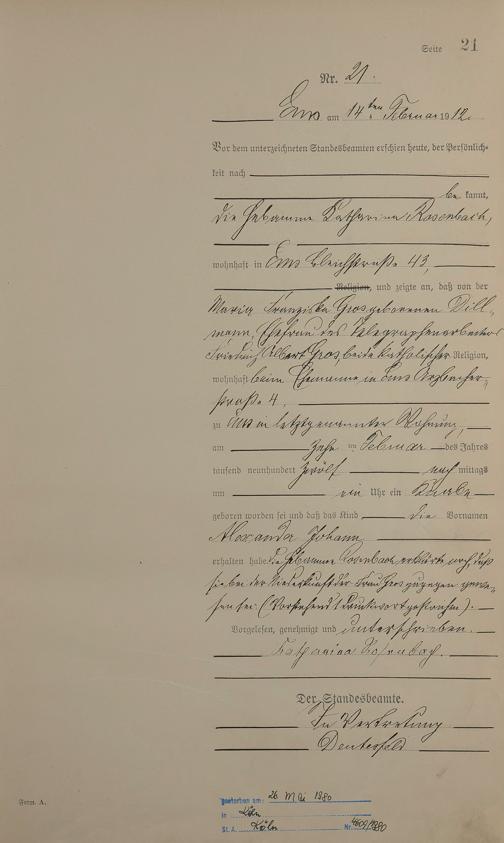 Seite 21
Nr. 21.
Ems am 14ten Februar 1912.
Vor dem unterzeichneten Standesbeamten erschien heute, der Persönlich-
keit nach
be kannt,
die Hebamme Katharina Rosenbach,
wohnhaft in Ems Bleichstraße 43,
Religion, und zeigte an, daß von der
Maria Franziska Gros geborenen Dill-
mann, Ehefrau des Telegraphenarbeiters
Friedrich Albert Gros, beide katholischer Religion,
wohnhaft beim Ehemanne in Ems Arzbacher-
straße 4.
zu Ems in letztgenannter Wohnung,
am Februar des Jahres
tausend neunhundert zwölf nach mittags
um ein Uhr ein Knabe
geboren worden sei und daß das Kind die Vornamen
Johann
erhalten habe. Die Hebamme Rosenbach erklärte noch, daß
sie bei der Niederkunft der Frau Gros zugegen gewe-
sen sei. (Vorstehend 1 Druckwort gestrichen).
Vorgelesen, genehmigt und unterschrieben.
Katharina Rosenbach.
Der Standesbeamte.
In Vertretung
Form. A.
gestorben am: 26. Mai 1980
in Köln
St. A. Köln Nr. /1980